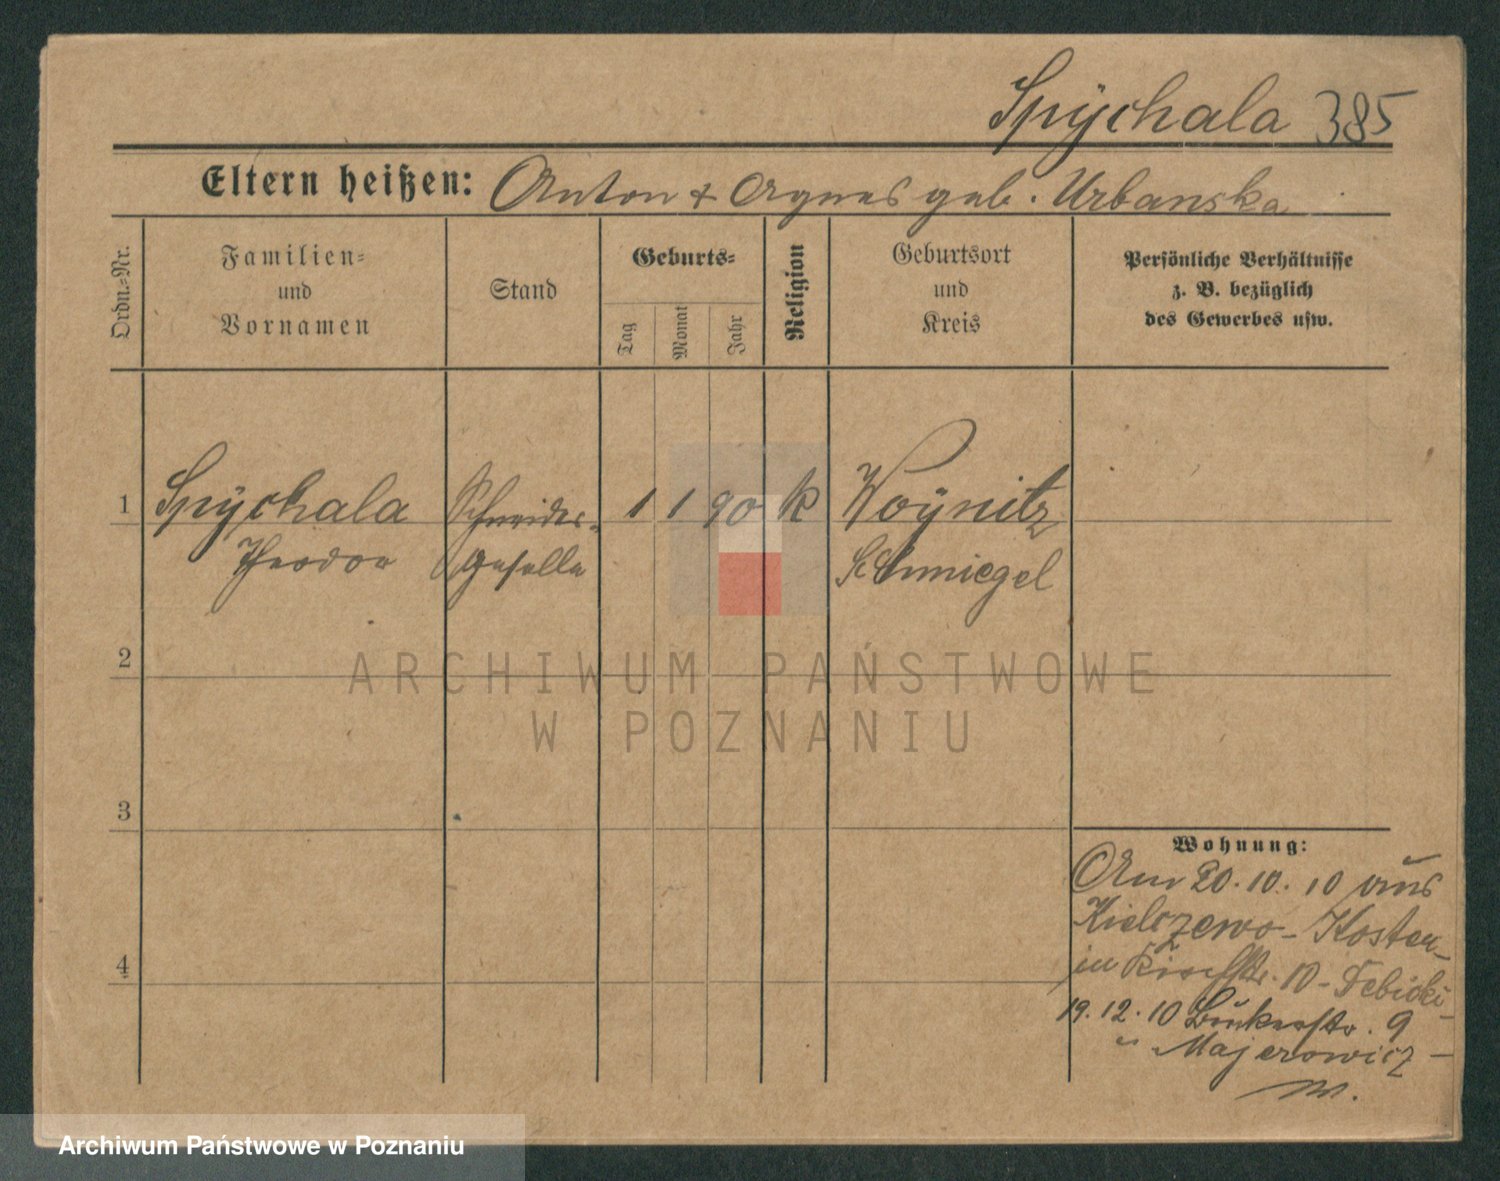 Spÿchala 385
Eltern heißen: Anton & Agnes geb. Urbanska
Ordn.-Nr.
Familien-
und
Vornamen
Stand
Geburts-
Tag
Monat
Jahr
Religion
Geburtsort
und
Kreis
Persönliche Verhältnisse
z. B. bezüglich
des Gewerbes usw.
1 Spÿchala Schneider- 1 1 90 k Woÿnitz
Theodor geselle Schmiegel
2
ARCHIWUM PAŃSTWOWE
W POZNANIU
3
Wohnung:
Am 20.10.10 aus
Kielczewo-Kosten
in 10-Debicki-
4
19.12.10 9
" Majerowicz-
Archiwum Państwowe w Poznaniu